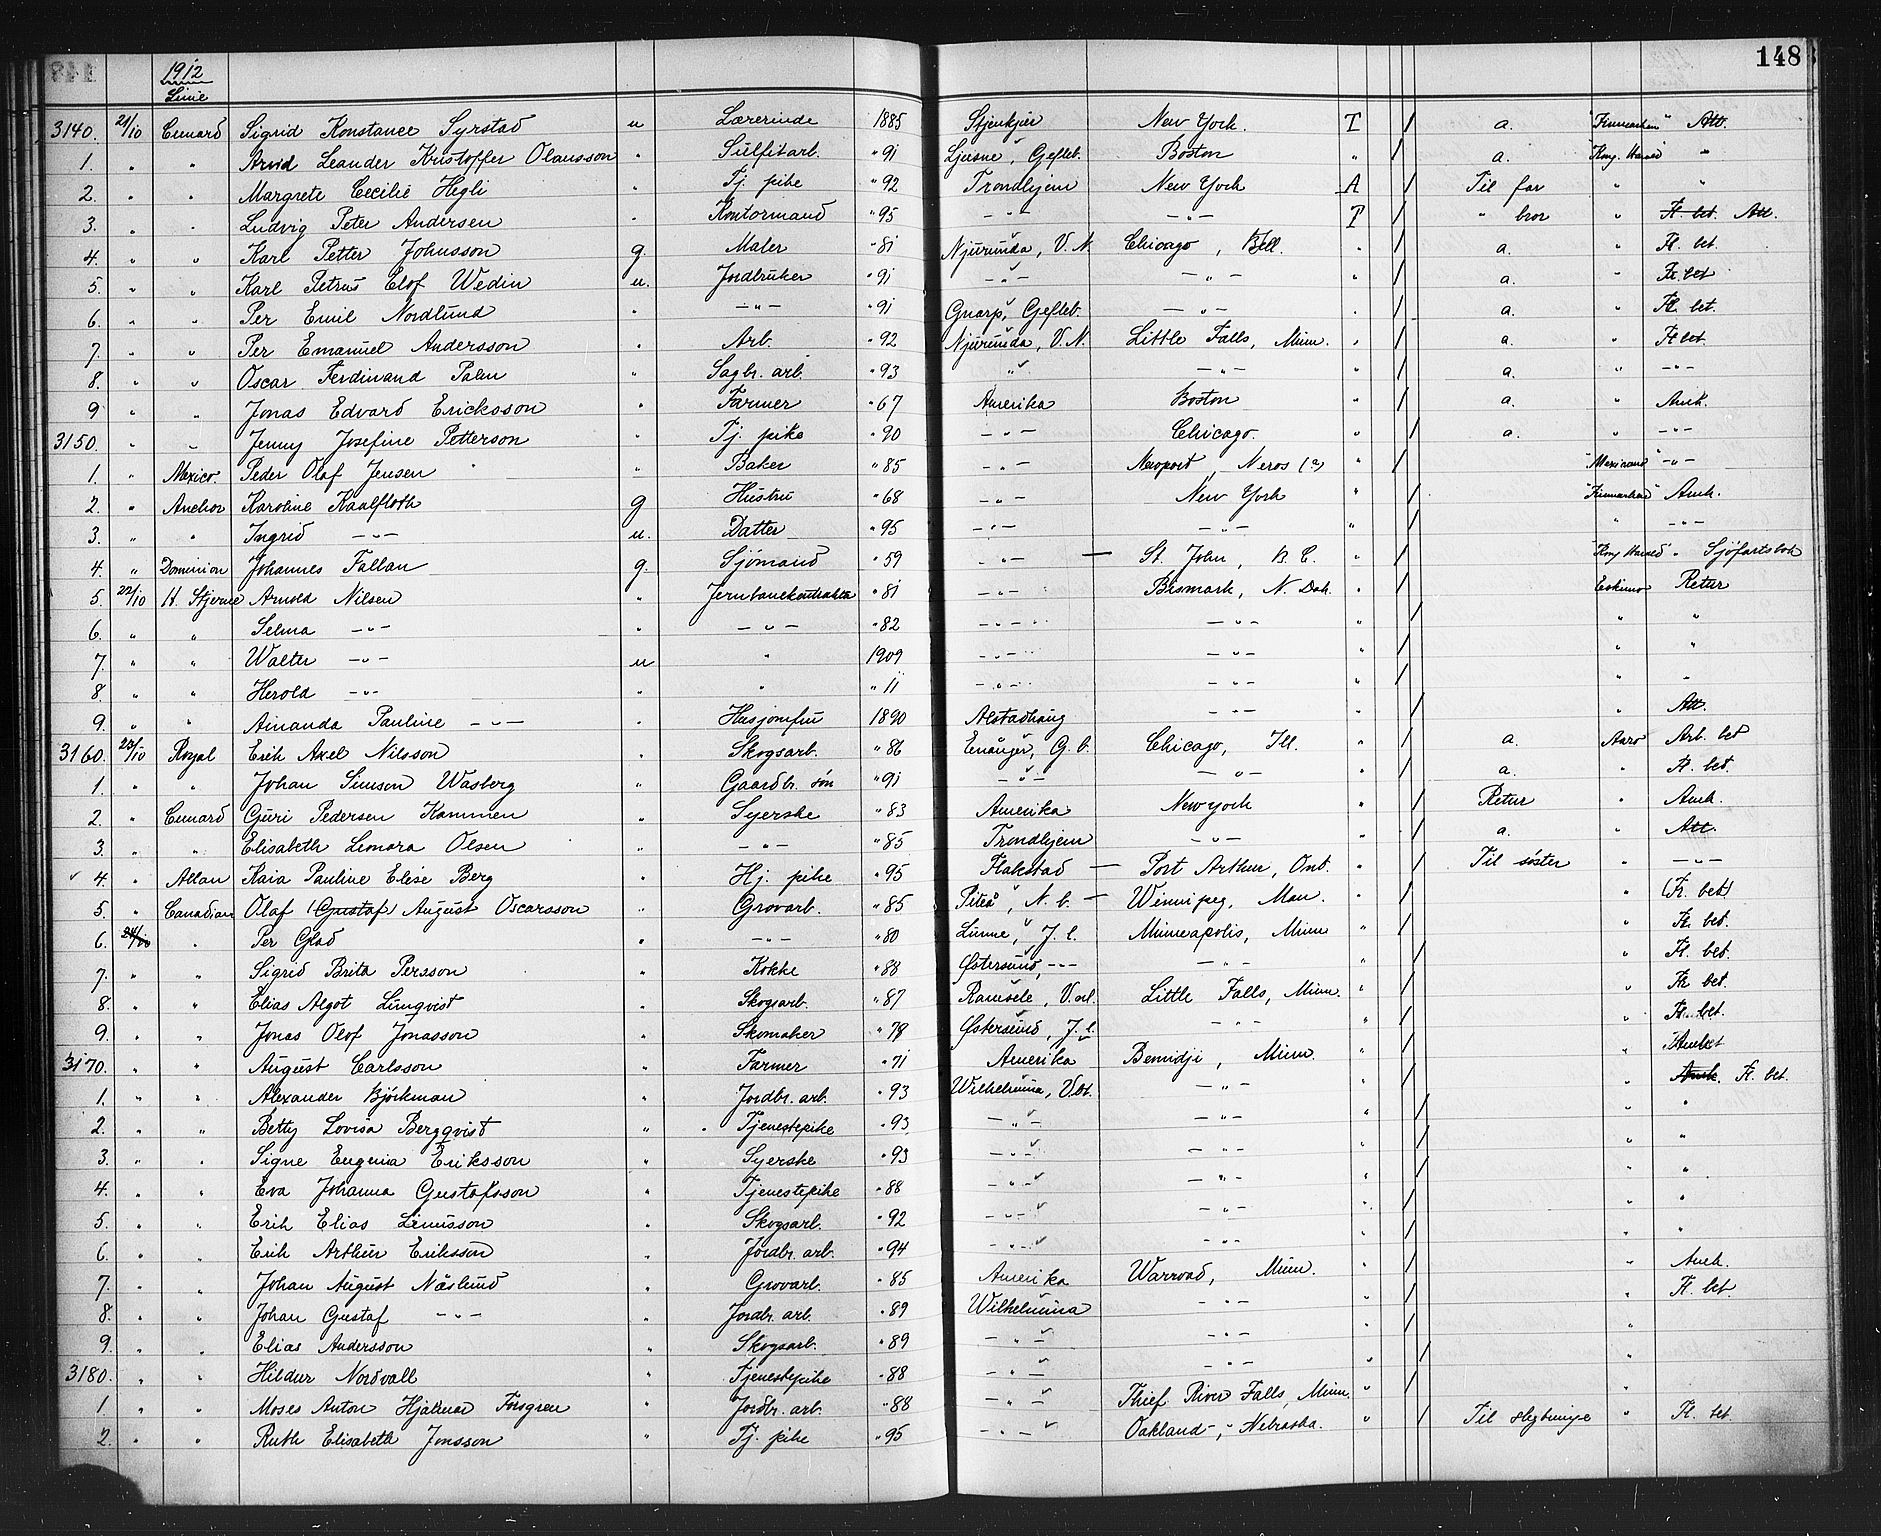 1912 148
Linie
3140. 21/10 Cunard Sigrid Konstance Syrstad u Lærerinde 1885 Stjenkjær New York. T / a. "Finmarken" Att.
1. " " Arvid Leander Kristoffer Olausson " Sulfitarb. " 91 Ljusne, Gefleb. Boston " / a. "Kong Harald" "
2. " " Margrete Cecilie Hegli " Tj. pike " 92 Trondhjem New York A / Til far " "
3. " " Ludvig Peter Andersen " Kontormand " 95 - " - - " - T / " bror " Fl. bet. Att.
4. " " Karl Petter Johnsson g. Maler " 81 Njurunda, V. N. Chicago, Ill. " / a. " Fl. bet.
5. " " Karl Petrus Elof Wedin u. Jordbruker " 91 - " - - " - " / a. " Fl. bet
6. " " Per Emil Nordlund " - " - " 91 Gnarp, Gefleb. - " - " / a. " Fl. bet.
7. " " Per Emanuel Andersson " Arb. " 92 Njurunda, V. N. Little Falls, Minn. " / a. " Fl. bet.
8. " " Oscar Ferdinand Palm " Sagbr. arb. " 93 " - " - " / a. " - " -
9 " " Jonas Edvard Ericksson " Farmer " 67 Amerika Boston " / a. " Amk.
3150. " " Jenny Josefine Petterson " Tj. pike " 90 - " - Chicago. " / a. " - " -
1. " Mexico Peder Olaf Jensen " Baker " 85 - " - Newport Neros (?) " / "Mexicano" - " -
2. " Anchor Karoline Kaulfloth g Hustru " 68 - " - New York " / "Finmarken" Amk.
3. " " Ingrid - " - u. Datter " 95 - " - - " - " / " - " -
4. " Dominion Johannes Fallan g. Sjömand " 59 - " - — St. John, B. C. " / "Kong Harald" " Sjöfartsbok
5. 22/10 H. Stjerne Arnold Nilsen " Jernbanekontraktör " 81 - " - Bismark, N. Dak. " / Eskimo Retur
6. " " Selma - " - " - " - " 82 - " - - " - " / " "
7. " " Walter - " - u " 1909 - " - - " - " / " "
8. " " Herold - " - " " " 11 - " - - " - " / " "
9. " " Amanda Pauline - " - " Husjomfru 1890 Alstadhaug - " - " / " Att.
3160. 23/10 Royal Erik Axel Nilsson " Skogsarb. " 86 Enånger, G. b. Chicago, Ill. " / a. Aaro Arb. bet
1. " " Johan Simson Wasberg " Gaardbr. sön " 91 - " - - " - " / a. " Fl. bet.
2. " Cunard Guri Pedersen Kammen " Syerske " 83 Amerika New york " / Retur " Amk.
3. " " Elisabeth Leonora Olsen " - " - " 85 Trondhjem - " - " / a. " Att.
4. " Allan Kaia Pauline Elise Berg " Hj. pike " 95 Flakstad — Port Arthur, Ont. " / Til söster " - " -
5. " Canadian Olaf (Gustaf) August Oscarsson " Grovarb. " 85 Piteå, N. b. — Winnipeg, Man. " / " (Fl. bet)
6. 24/10 " Per Glad " - " - " 80 Lunne, J. l. Minneapolis, Minn " / " Fl. bet.
7. " " Sigrid Brita Persson " Kokke " 88 Østersund, - " - - " - " / " Fl. bet.
8. " " Elias Algot Lunqvist " Skogsarb. " 87 Ramsele, V. nl. Little Falls, Minn. " / " Fl. bet.
9. " " Jonas Olof Jonasson " Skomaker " 78 Østersund, J. l. - " - " / " Fl. bet.
3170. " " August Carlsson " Farmer " 71 Amerika Bemidji, Minn. " / "
1. " " Alexander Björkman " Jordbr. arb. " 93 Wilhelmina, V. bt. - " - " / " Amk. Fl. bet.
2. " " Betty Lovisa Bergqvist " Tjenestepike " 93 - " - - " - " / " "
3. " " Signe Eugenia Eriksson " Syerske " 93 - " - - " - " / " "
4. " " Eva Johanna Gustafsson " Tjenestepike " 88 - " - - " - " / " "
5. " " Erik Elias Linusson " Skogsarb. " 92 - " - - " - " / " "
6. " " Erik Arthur Eriksson " Jordbr. arb. " 94 - " - - " - " / " "
7. " " Johan August Näslund " Grovarb. " 85 Amerika Warroad, Minn. " / " Amk.
8. " " Johan Gustaf - " - " Jordbr. arb. " 89 Wilhelmina - " - " / " Fl. bet.
9. " " Elias Andersson " Skogsarb. " 89 - " - - " - " / "
3180. " " Hildur Nordvall " Tjenestepike " 88 - " - - " - " / "
1. " " Moses Anton Hjalmar Forsgren " Jordbr. arb. " 88 - " - Thief River Falls, Minn. " / "
2. " " Ruth Elisabeth Jonsson " Tj. pike " 95 - " - Oakland, Nebraska. " / Til slegtninge " Fl. bet.